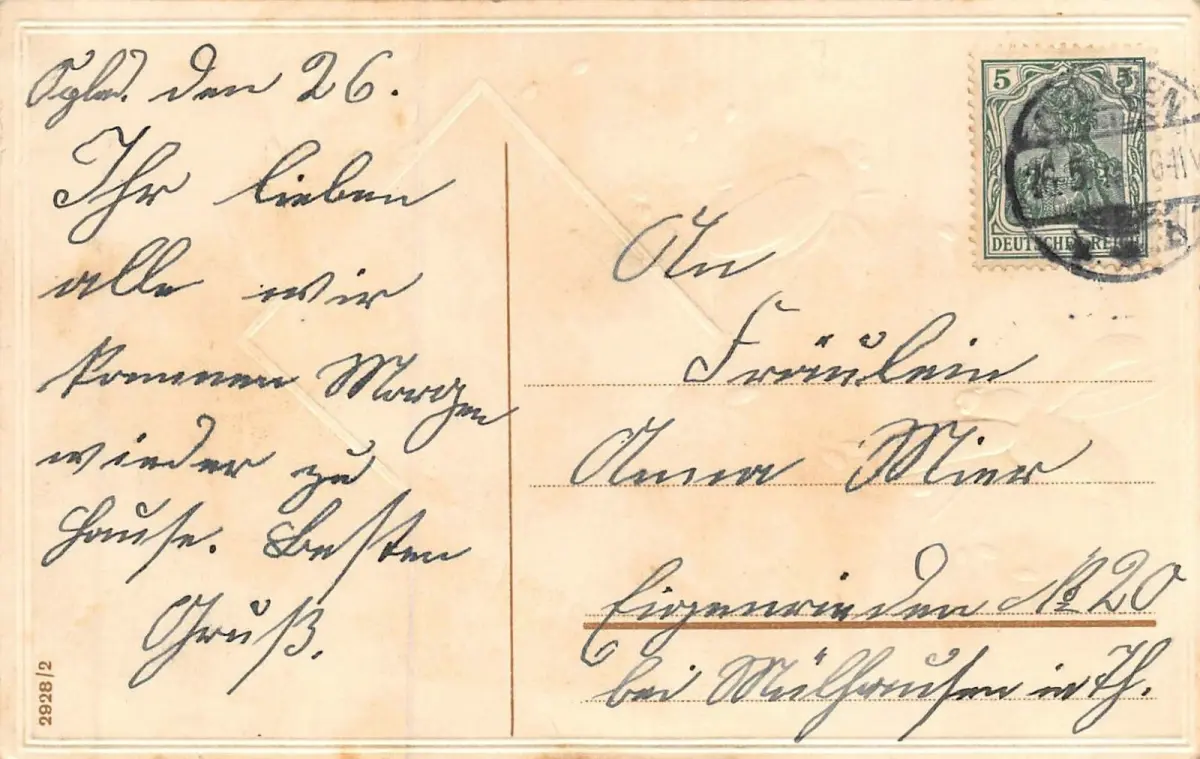 den 26.
Ihr lieben
alle wir
kommen Morgen
wieder zu
Hause. Besten
Gruß.
2928/2
5 5
DEUTSCHES REICH
An
Fräulein
Anna Mier
Eigenrieden № 20
bei Mülhausen in Th.